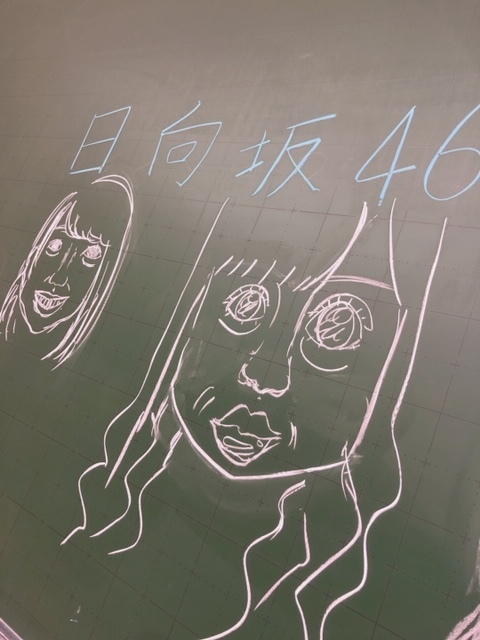 日向坂46